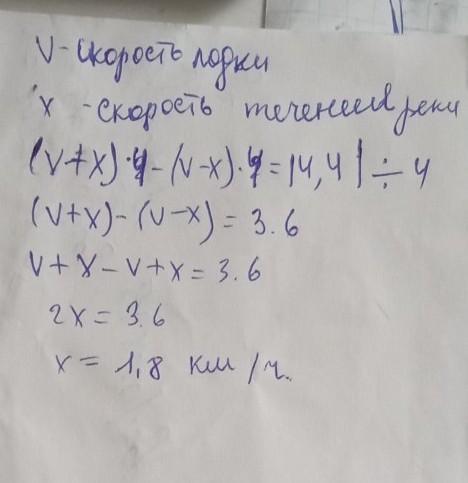 V - скорость лодки
x - скорость течения реки
(V+x)·4-(V-x)·4=14,4 | ÷ 4
(V+x)-(V-x)=3.6
V+x-V+x=3.6
2x=3.6
x=1,8 км/ч.